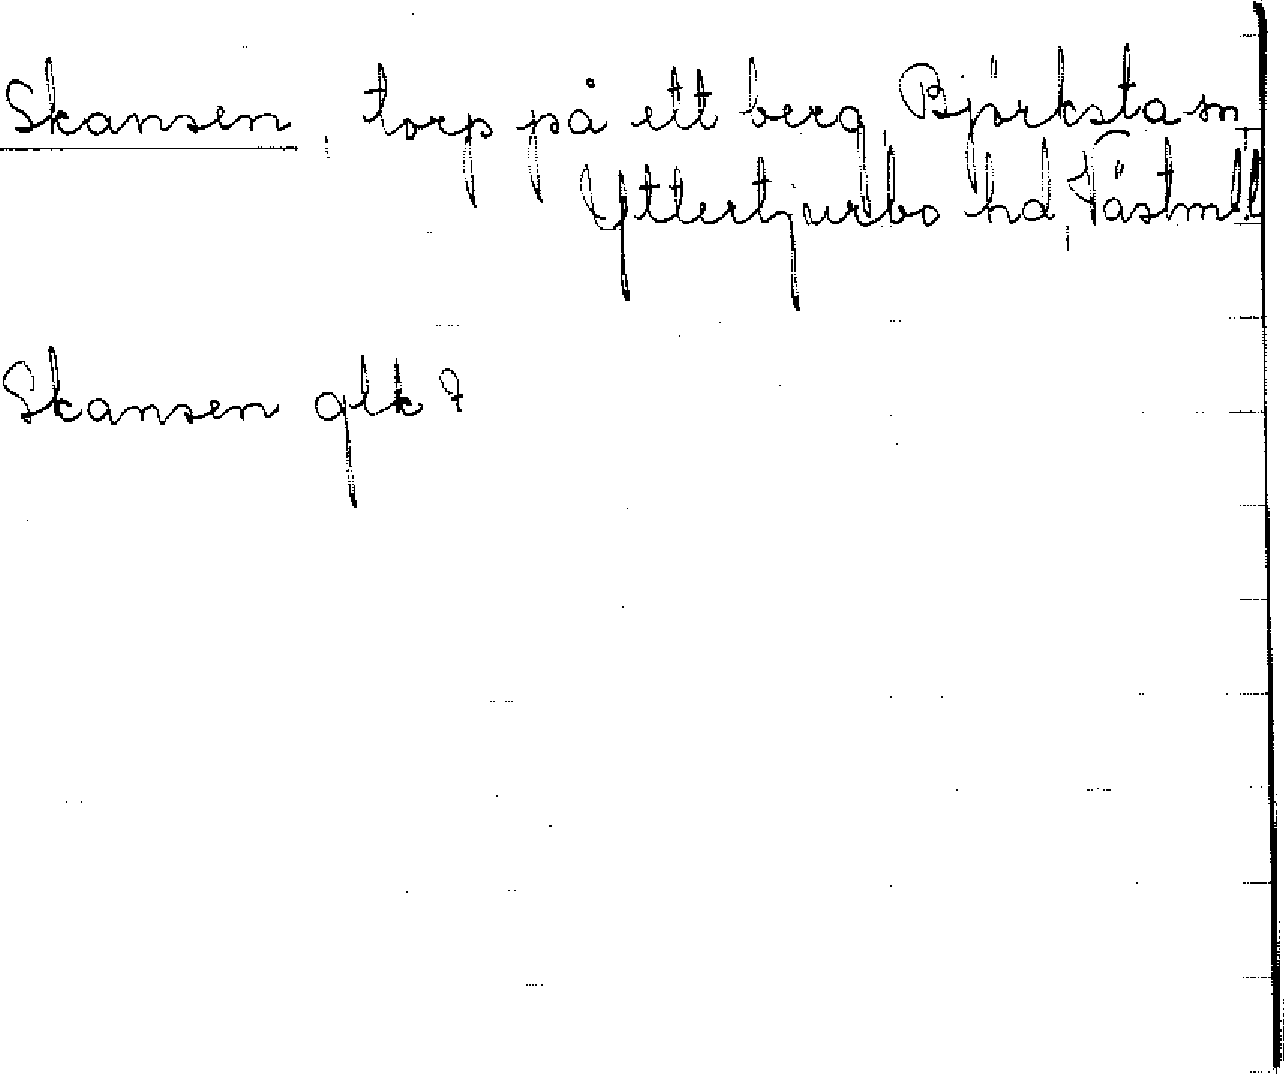 Skansen, torp på ett berg, Björksta sn,
Yttertjurbo hd, Västmll
Skansen glk?